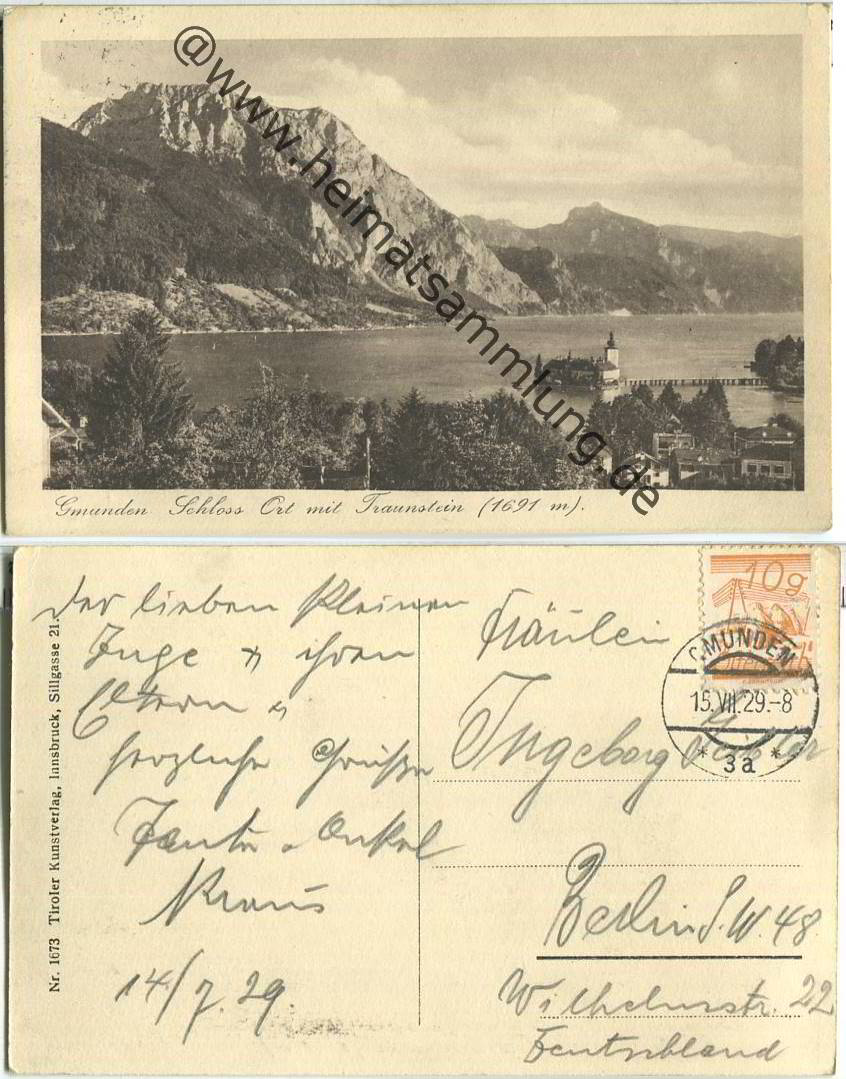 @www.heimatsammlung.de
Gmunden Schloss Ort mit Traunstein (1691 m).
Nr. 1673 Tiroler Kunstverlag, Innsbruck, Sillgasse 21.
Der lieben kleinen
Inge u ihren
Eltern
herzliche Grüße
Tante u Onkel
Kraus
14/7.29.
10g
GMUNDEN
15.VII.29.-8
* 3a *
Fräulein
Ingeborg
Berlin S.W. 48
Wilhelmstr. 22
Deutschland